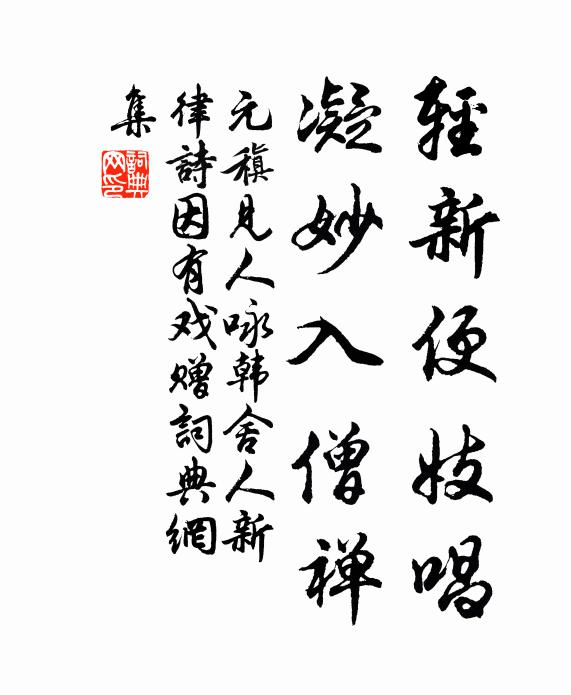 輕新便妓唱
凝妙入僧禅
元稹見人咏韩舍人新
律詩因有戏赠詞典網
集
詞典網印